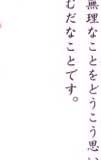 無理なことをどうこう思い
むだなことです。